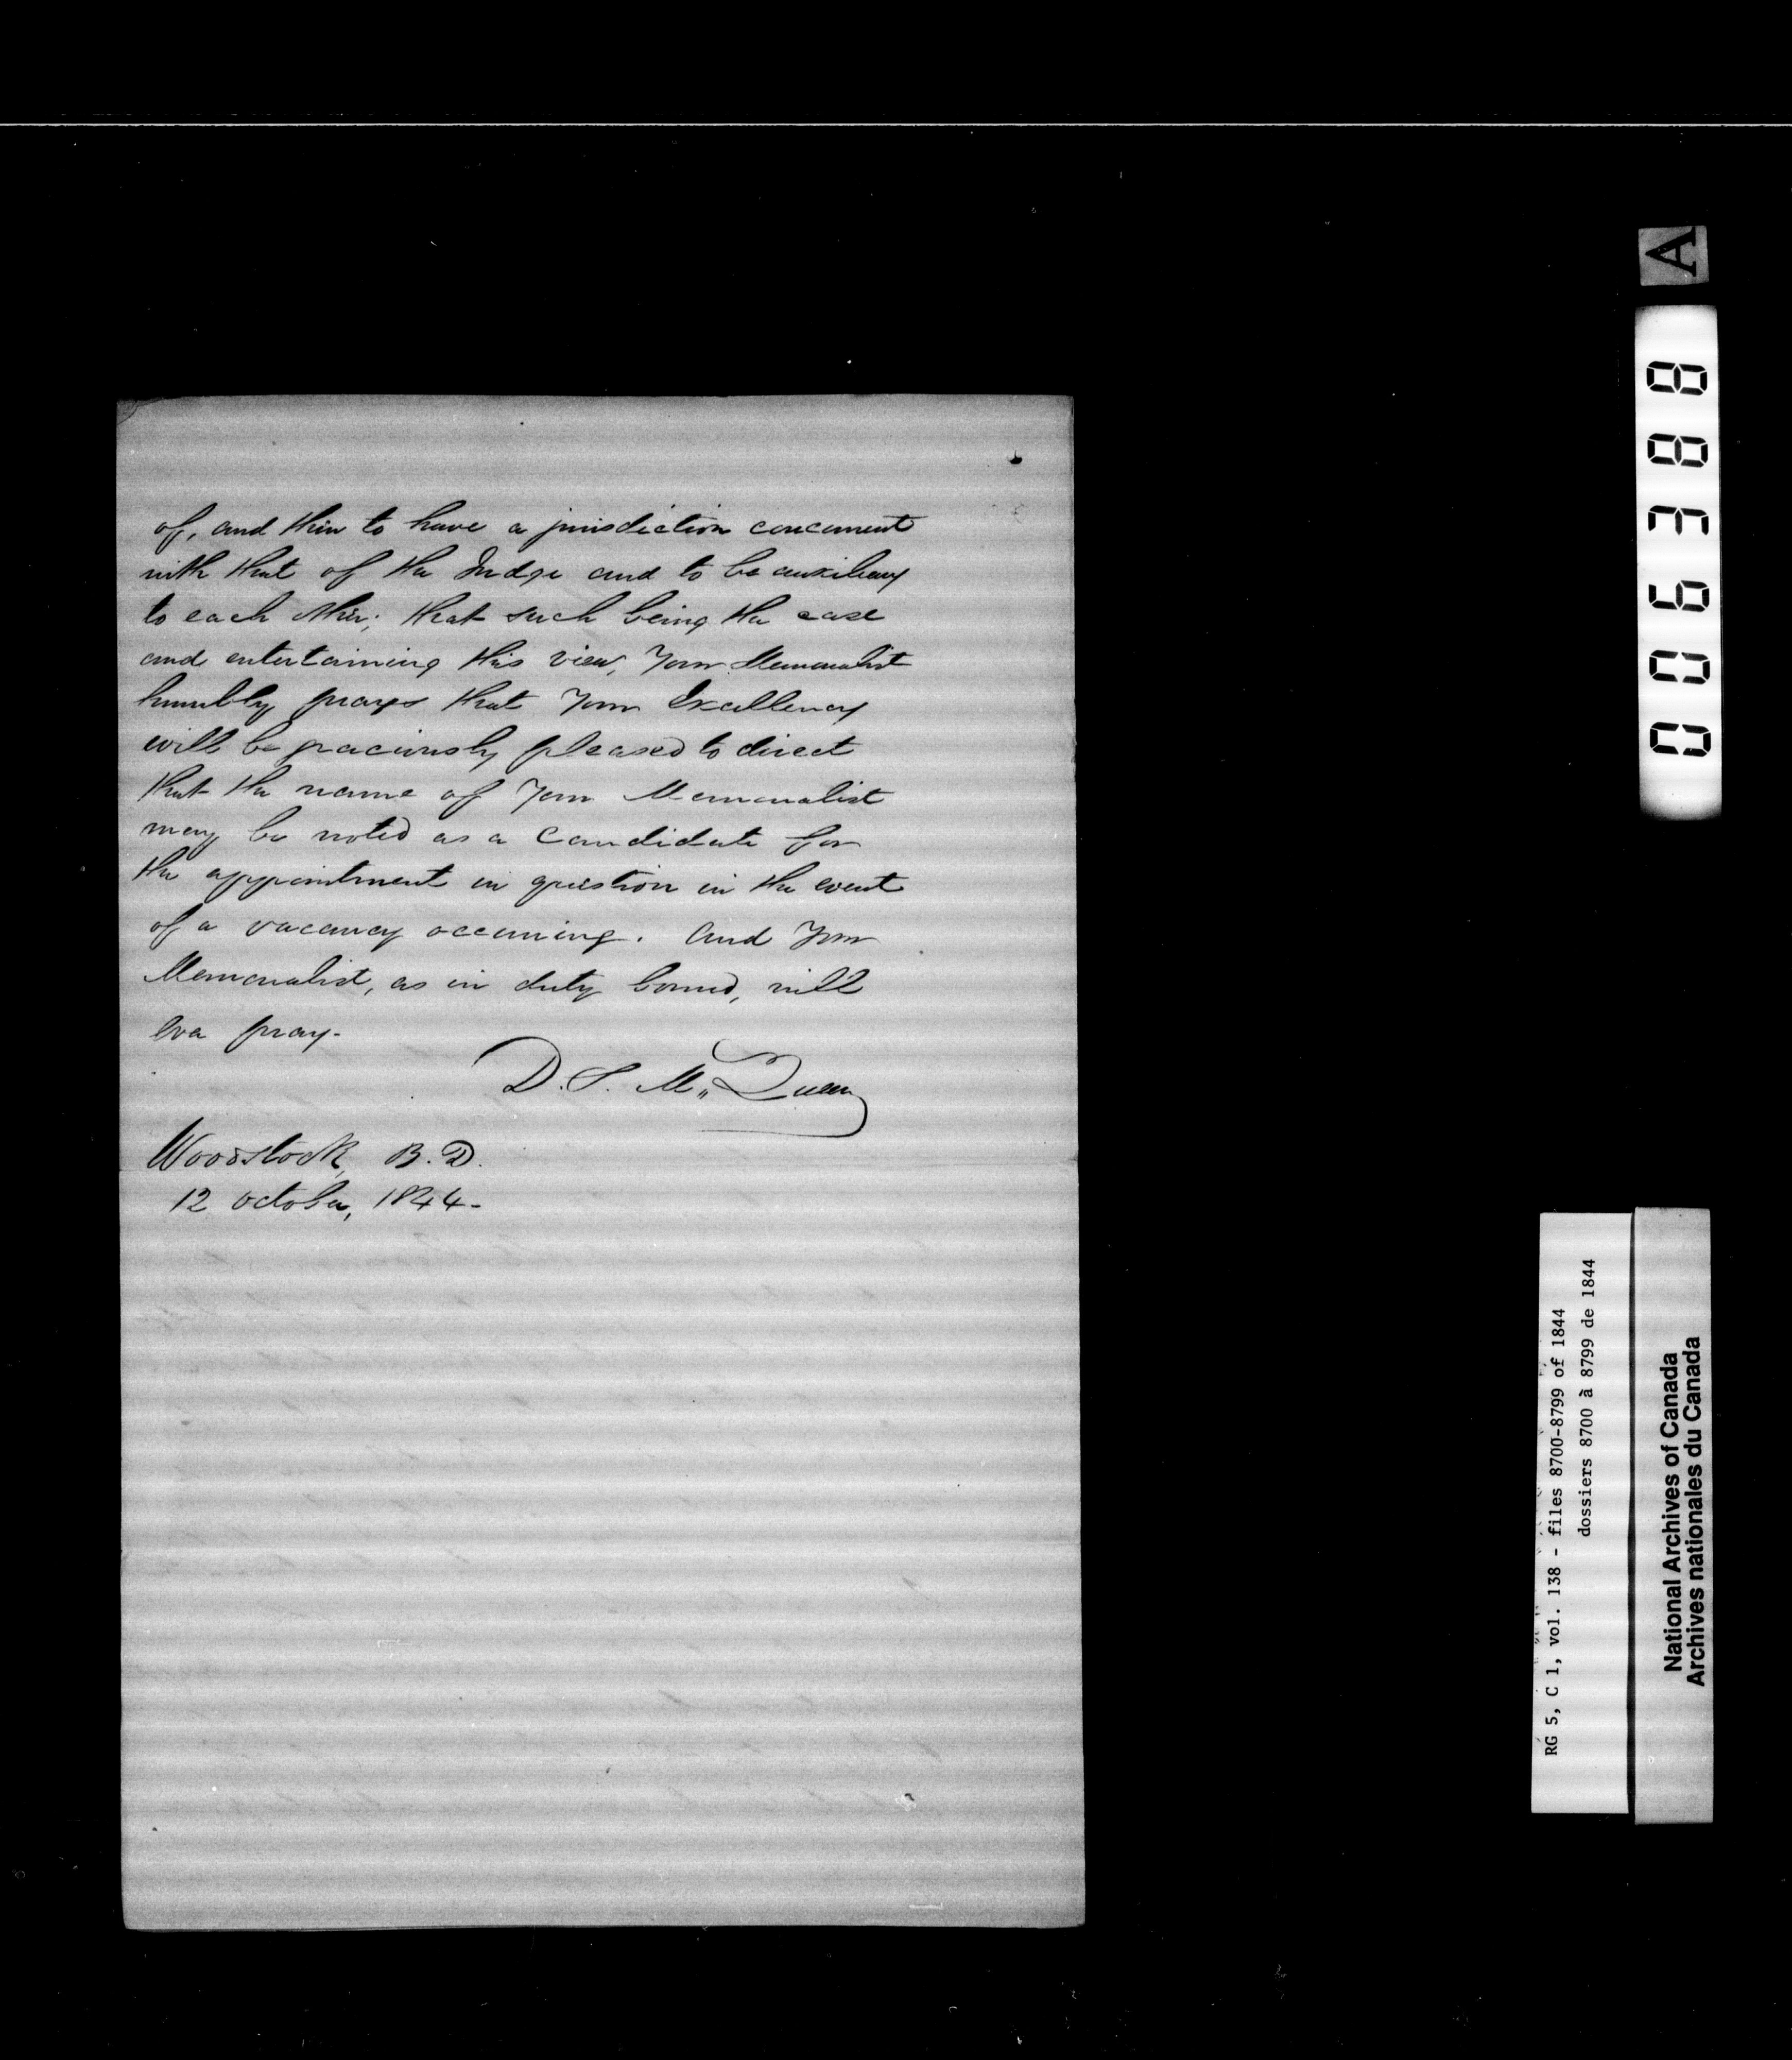 of, and then to have a jurisdiction concurrent
with that of the Judge and to be auxiliary
to each other; that such being the case
and entertaining this view, Your Memorialist
humbly prays that Your Excellency
will be graciously pleased to direct
that the name of Your Memorialist
may be noted as a Candidate for
the appointment in question in the event
of a vacancy occurring. And Your
Memorialist, as in duty bound, will
Ever pray.
D. S. McQueen
Woodstock, B. D.
12 October, 1844-
A
006388
RG 5, C 1, vol. 138 - files 8700-8799 of 1844
dossiers 8700 à 8799 de 1844
National Archives of Canada
Archives nationales du Canada